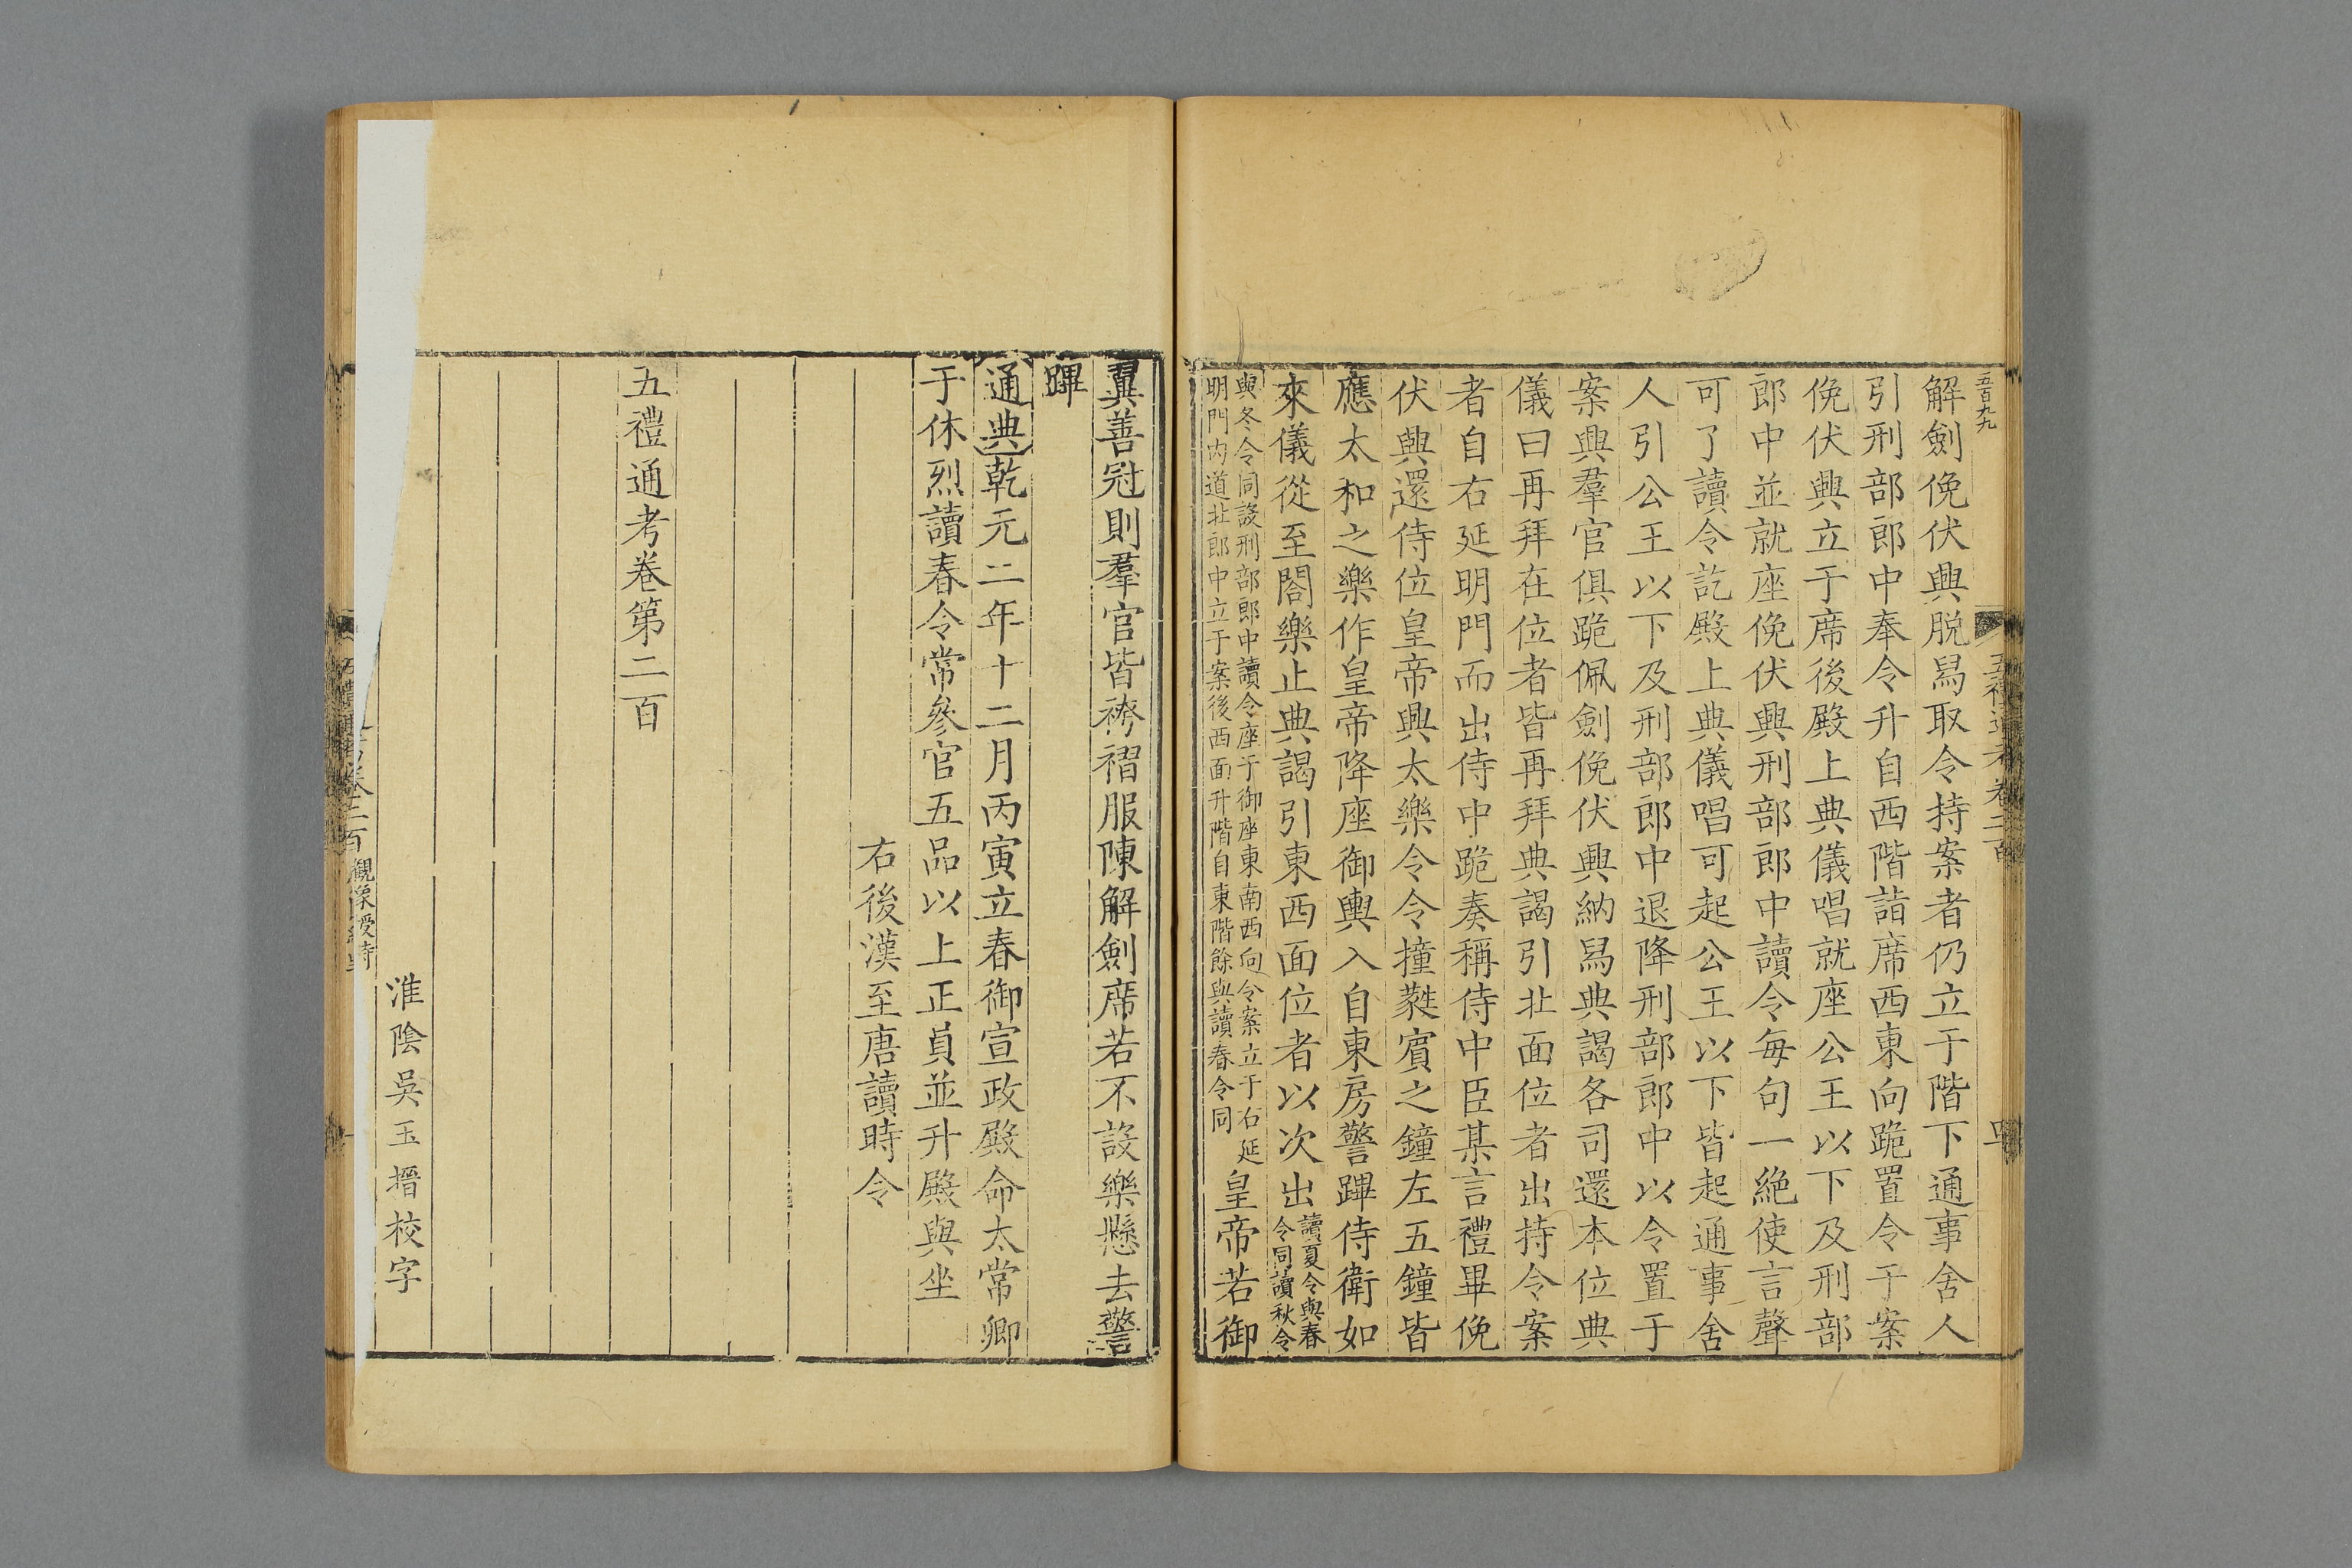 五百九九
解劍俛伏興脫舄取令持案者仍立于階下通事舍人
引刑部郎中奉令升自西階詣席西東向跪置令于案
俛伏興立于席後殿上典儀唱就座公王以下及刑部
郎中並就座俛伏興刑部郎中讀令每句一絕使言聲
可了讀令訖殿上典儀唱可起公王以下皆起通事舍
人引公王以下及刑部郎中退降刑部郎中以令置于
案興羣官俱跪佩劍俛伏興納舄典謁各司還本位典
儀曰再拜在位者皆再拜典謁引北面位者出持令案
者自右延明門而出侍中跪奏稱侍中臣某言禮畢俛
伏興還侍位皇帝興太樂令令撞蕤賓之鐘左五鐘皆
應太和之樂作皇帝降座御輿入自東房警蹕侍衛如
來儀從至閤樂止典謁引東西面位者以次出讀夏令與春
令同讀秋令
與冬令同設刑部郎中讀令座于御座東南西向令案立于右延
明門內道北郎中立于案後西面升階自東階餘與讀春令同
皇帝若御
五禮通考卷二百
翼善冠則羣官皆袴褶服陳解劍席若不設樂懸去警
蹕
通典乾元二年十二月丙寅立春御宣政殿命太常卿
于休烈讀春令常參官五品以上正員並升殿與坐
右後漢至唐讀時令
五禮通考卷第二百
淮陰吳玉搢校字
卷二百 觀象授時